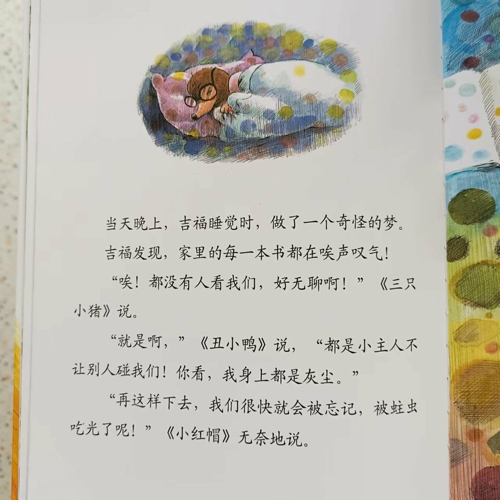 当天晚上，吉福睡觉时，做了一个奇怪的梦。
吉福发现，家里的每一本书都在唉声叹气！
“唉！都没有人看我们，好无聊啊！”《三只
小猪》说。
“就是啊，”《丑小鸭》说，“都是小主人不
让别人碰我们！你看，我身上都是灰尘。”
“再这样下去，我们很快就会被忘记，被蛀虫
吃光了呢！”《小红帽》无奈地说。